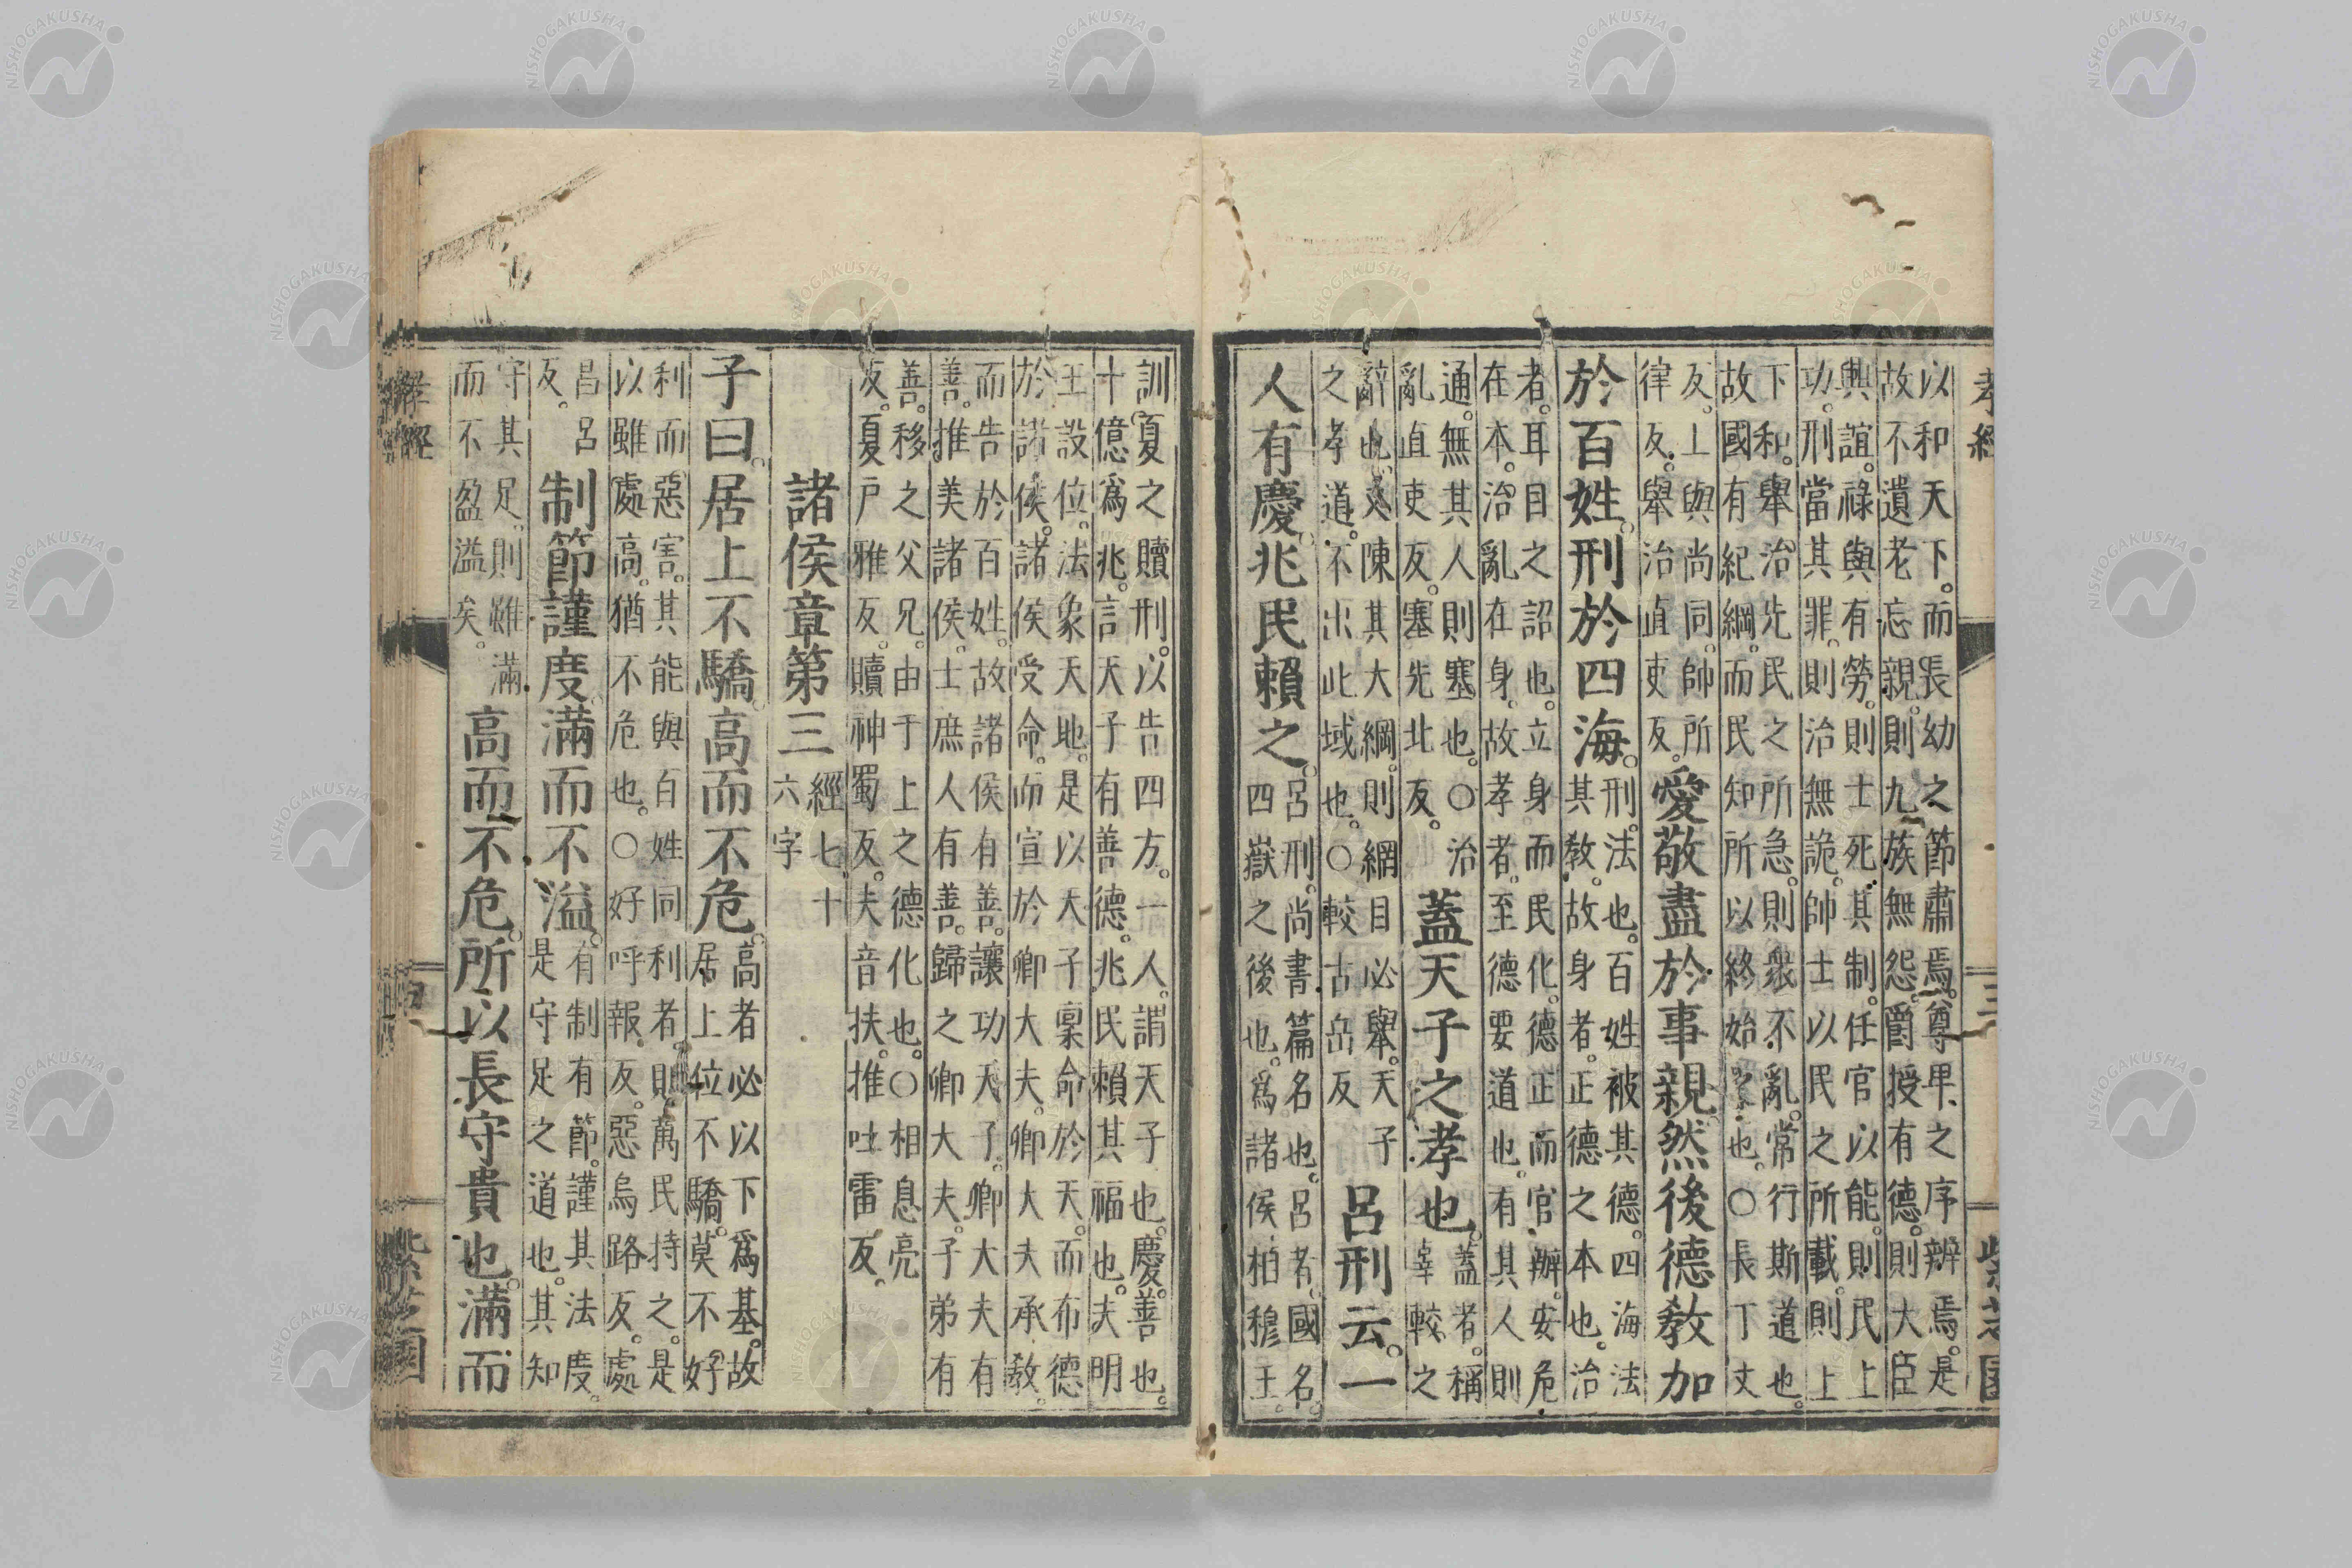 以和天下。而長幼之節肅焉。尊卑之序辨焉。是
故不遺老忘親。則九族無怨。爵授有德。則大臣
興誼。祿與有勞。則士死其制。任官以能。則民上
功。刑當其罪。則治無詭。帥士以民之所載。則上
下和。舉治先民之所急。則衆不亂。常行斯道也。
故國有紀綱。而民知所以終始之也。○長丁丈
反。上與尚同。帥所
律反。舉治直吏反。
愛敬盡於事親。然後德教加
於百姓。刑於四海。
刑。法也。百姓被其德。四海法
其教。故身者。正德之本也。治
者。耳目之詔也。立身而民化。德正而官辦。安危
在本。治亂在身。故孝者。至德要道也。有其人則
通。無其人則塞也。○治
亂直吏反。塞先北反。
蓋天子之孝也。
蓋者。稱
辜較之
辭也。又陳其大綱。則網目必舉。天子
之孝道。不出此域也。○較古岳反
呂刑云。一
人有慶。兆民賴之。
呂刑。尚書篇名也。呂者。國名。
四嶽之後也。爲諸侯。相穆王。
孝經
三
紫芝園
訓夏之贖刑。以告四方。一人。謂天子也。慶。善也。
十億爲兆。言天子有善德。兆民賴其福也。夫明
王設位。法象天地。是以天子稟命於天。而布德
於諸侯。諸侯受命。而宣於卿大夫。卿大夫承教。
而告於百姓。故諸侯有善。讓功天子。卿大夫有
善。推美諸侯。士庶人有善。歸之卿大夫。子弟有
善。移之父兄。由于上之德化也。○相息亮
反。夏戶雅反。贖神蜀反。夫音扶。推吐雷反。
諸侯章第三
經七十
六字
子曰。居上不驕。高而不危。
高者必以下爲基。故
居上位不驕。莫不好
利而惡害。其能與百姓同利者。則萬民持之。是
以雖處高。猶不危也。○好呼報反。惡烏路反。處
昌呂
反。
制節謹度。滿而不溢。
有制有節。謹其法度。
是守足之道也。其知
守其足。則雖滿
而不盈溢矣。
高而不危。所以長守貴也。滿而
孝經
四
紫芝園
NISHOGAKUSHA